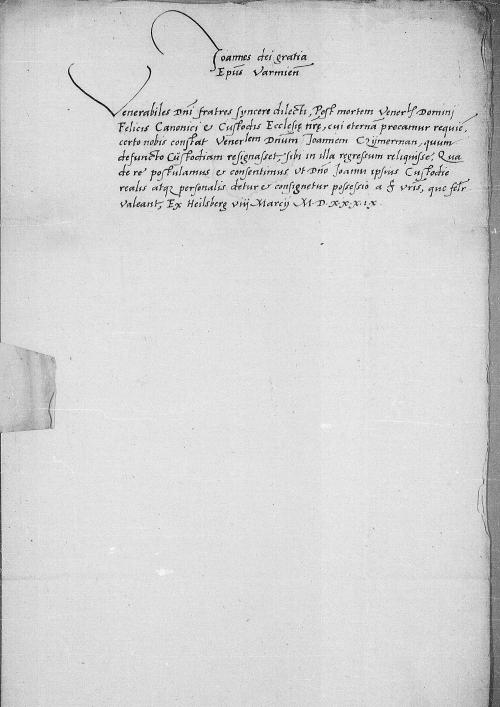 Joannes dei gratia
Ep̃us Varmieñ
Venerabiles Dñi fratres syncere dilecti, Post mortem Venerłs Domini
Felicis Canonici et Custodis Ecclesię nrę̃, cui eternã precamur requiẽ,
certo nobis constat Venerłem Dñium Joannem Czijmerman, quum
defuncto Custodiam resignasset, sibi in illa regressum reliquisse, Qua
de re postulamus et consentimus ut Dño Joanni ipsius Custodię
realis atq personalis detur et consignetur possessio a f. vris, que felr
valeant, Ex Heilsberg viij Marcij M.D.XXX.IX.